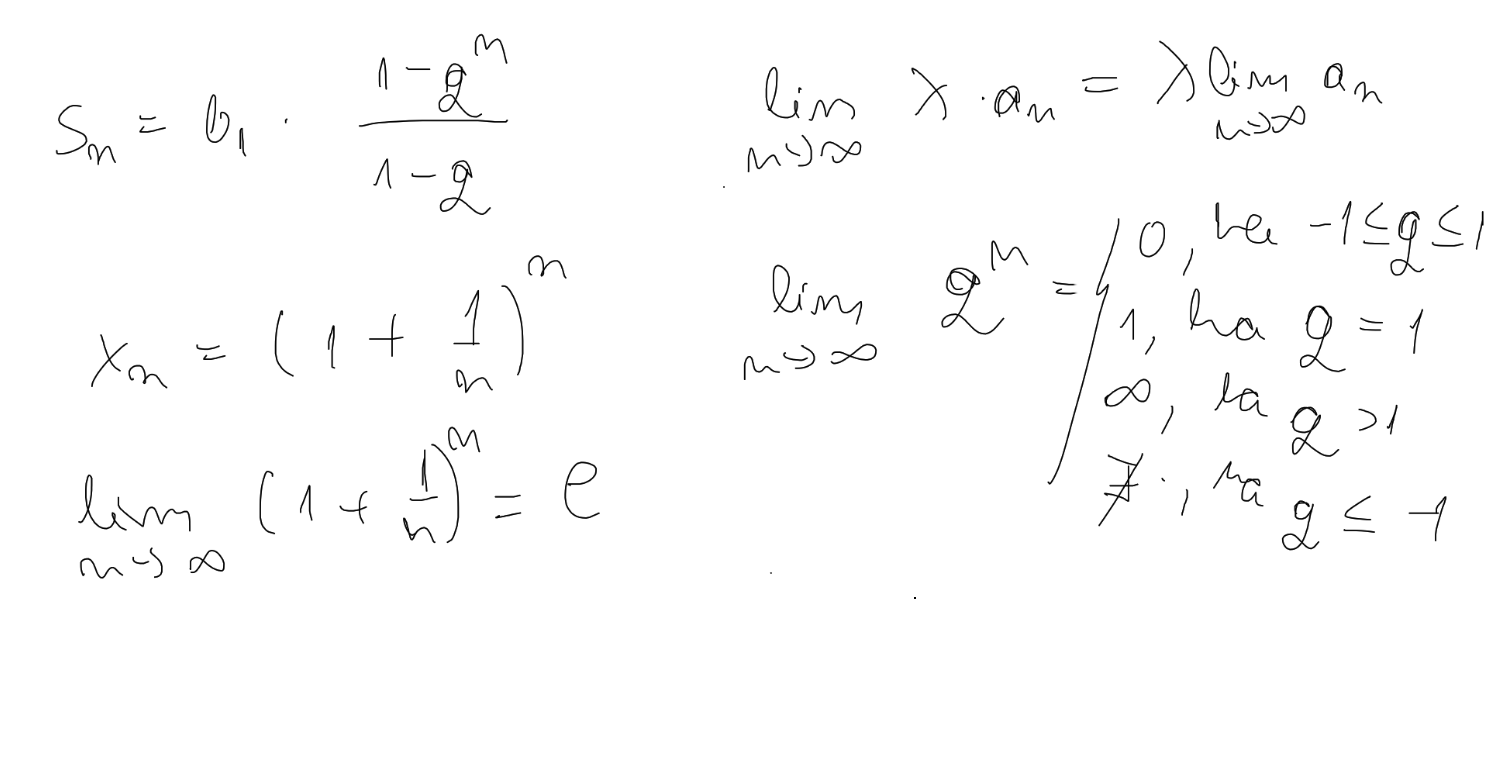 Sₙ = b₁ · (1 - qⁿ) / (1 - q)
xₙ = (1 + 1/n)ⁿ
lim n→∞ (1 + 1/n)ⁿ = e
lim n→∞ λ · aₙ = λ lim n→∞ aₙ
lim n→∞ qⁿ = { 0, ha -1 ≤ q ≤ 1
1, ha q = 1
∞, ha q > 1
∄, ha q ≤ -1